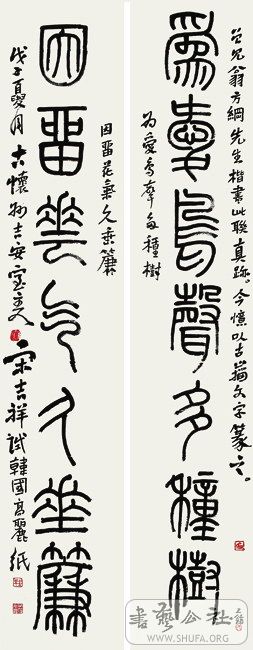 翁方綱先生楷書此聯真跡。今憶以古籀文字篆之。
為愛鳥聲多種樹
为愛鳥聲多種樹
因留花氣久垂簾
因留花氣久垂簾
戊子夏月古懷 吉安 宋吉祥試韓國高麗紙
書藝公社
WWW.SHUFA.ORG